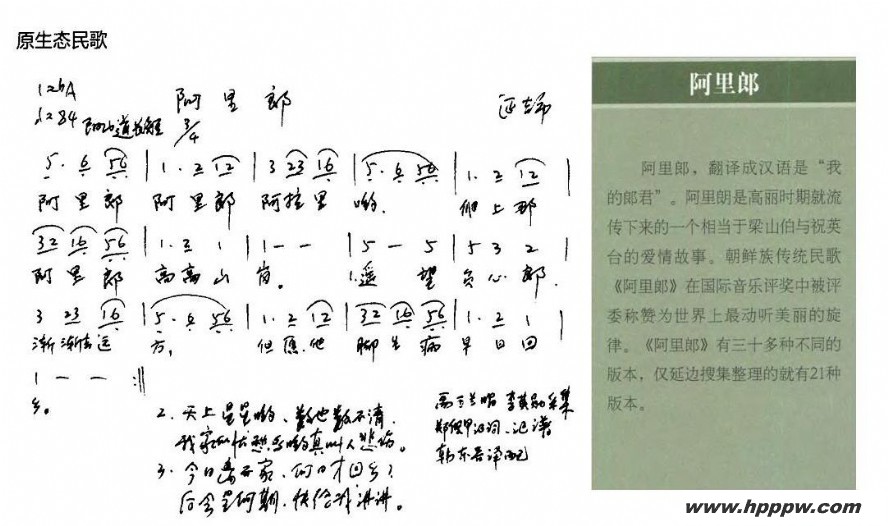 原生态民歌
1=bA
♩=84
阿里郎
3/4
延边
5· 6 56 | 1· 2 12 | 3 23 16 | 5· 6 56 | 1· 2 12
阿 里 郎 阿 里 郎 阿拉里 哟 他上那
32 16 56 | 1· 2 1 | 1 - - | 5 - 5 | 5 3 2
阿 里 郎 高高山 岗。 1.遥 望 负心郎
3 23 16 | 5· 6 56 | 1· 2 12 | 32 16 56 | 1· 2 1
渐渐去远 方, 但愿他 脚生病 早日回
1 - - :‖
乡。
2. 天上星星哟、数也数不清
我家的忧愁哟真叫人悲伤。
3. 今日离开家、何日才回乡?
后会是何期、快给我讲讲。
韩东吾译配
阿里郎
阿里郎,翻译成汉语是“我
的郎君”。阿里朗是高丽时期就流
传下来的一个相当于梁山伯与祝英
台的爱情故事。朝鲜族传统民歌
《阿里郎》在国际音乐评奖中被评
委称赞为世界上最动听美丽的旋
律。《阿里郎》有三十多种不同的
版本,仅延边搜集整理的就有21种
版本。
www.hpppw.com